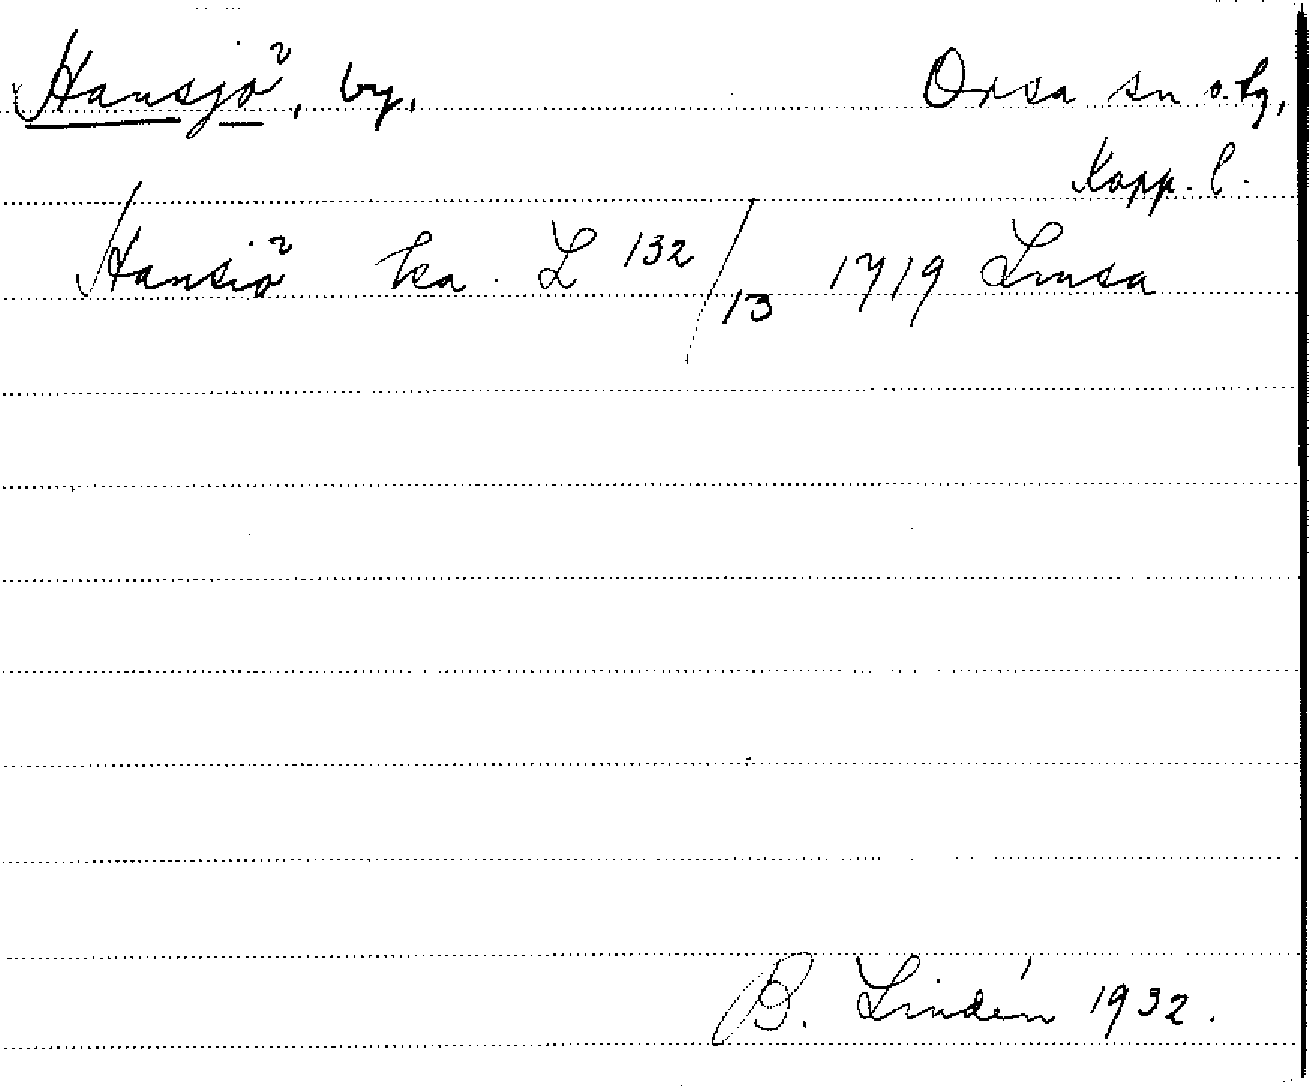 Hansjö, by. Orsa sn o. hg,
Kopp. l.
Hansiö ka. L 132/13 1719 Lmsa
B. Lindén 1932.